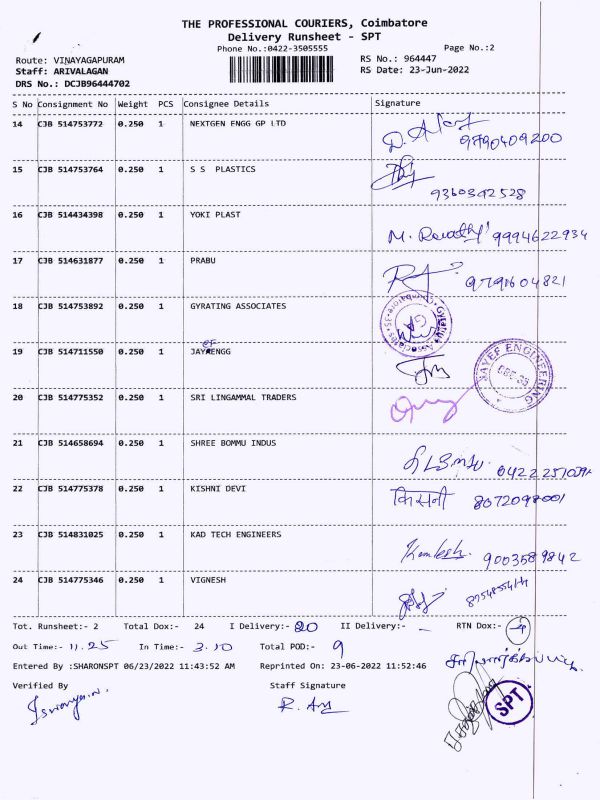 THE PROFESSIONAL COURIERS, Coimbatore
Delivery Runsheet - SPT
Phone No.:0422-3505555 Page No.:2
Route: VINAYAGAPURAM RS No.: 964447
Staff: ARIVALAGAN RS Date: 23-Jun-2022
DRS No.: DCJB96444702
S No Consignment No Weight PCS Consignee Details Signature
14 CJB 514753772 0.250 1 NEXTGEN ENGG GP LTD 9790409200
15 CJB 514753764 0.250 1 S S PLASTICS 9360342528
16 CJB 514434398 0.250 1 YOKI PLAST M. Revathi 9994622934
17 CJB 514631877 0.250 1 PRABU 9791604821
18 CJB 514753892 0.250 1 GYRATING ASSOCIATES
19 CJB 514711550 0.250 1 ENGG NAYEF ENGINEERING
20 CJB 514775352 0.250 1 SRI LINGAMMAL TRADERS
21 CJB 514658694 0.250 1 SHREE BOMMU INDUS
22 CJB 514775378 0.250 1 KISHNI DEVI किसनी
23 CJB 514831025 0.250 1 KAD TECH ENGINEERS Kamlesh. 9003589842
24 CJB 514775346 0.250 1 VIGNESH
Tot. Runsheet:- 2 Total Dox:- 24 I Delivery:- 20 II Delivery:- - RTN Dox:- 4
Out Time:- 11.25 In Time:- 3.10 Total POD:- 9
Entered By :SHARONSPT 06/23/2022 11:43:52 AM Reprinted On: 23-06-2022 11:52:46
Verified By Staff Signature
SPT